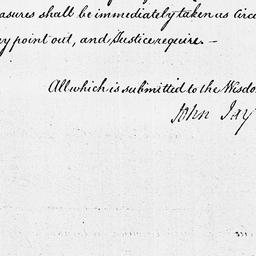 easures shall be immediately taken as Circ
ay point out, and Justice require. —
All which is submitted to the Wisdo
John Jay